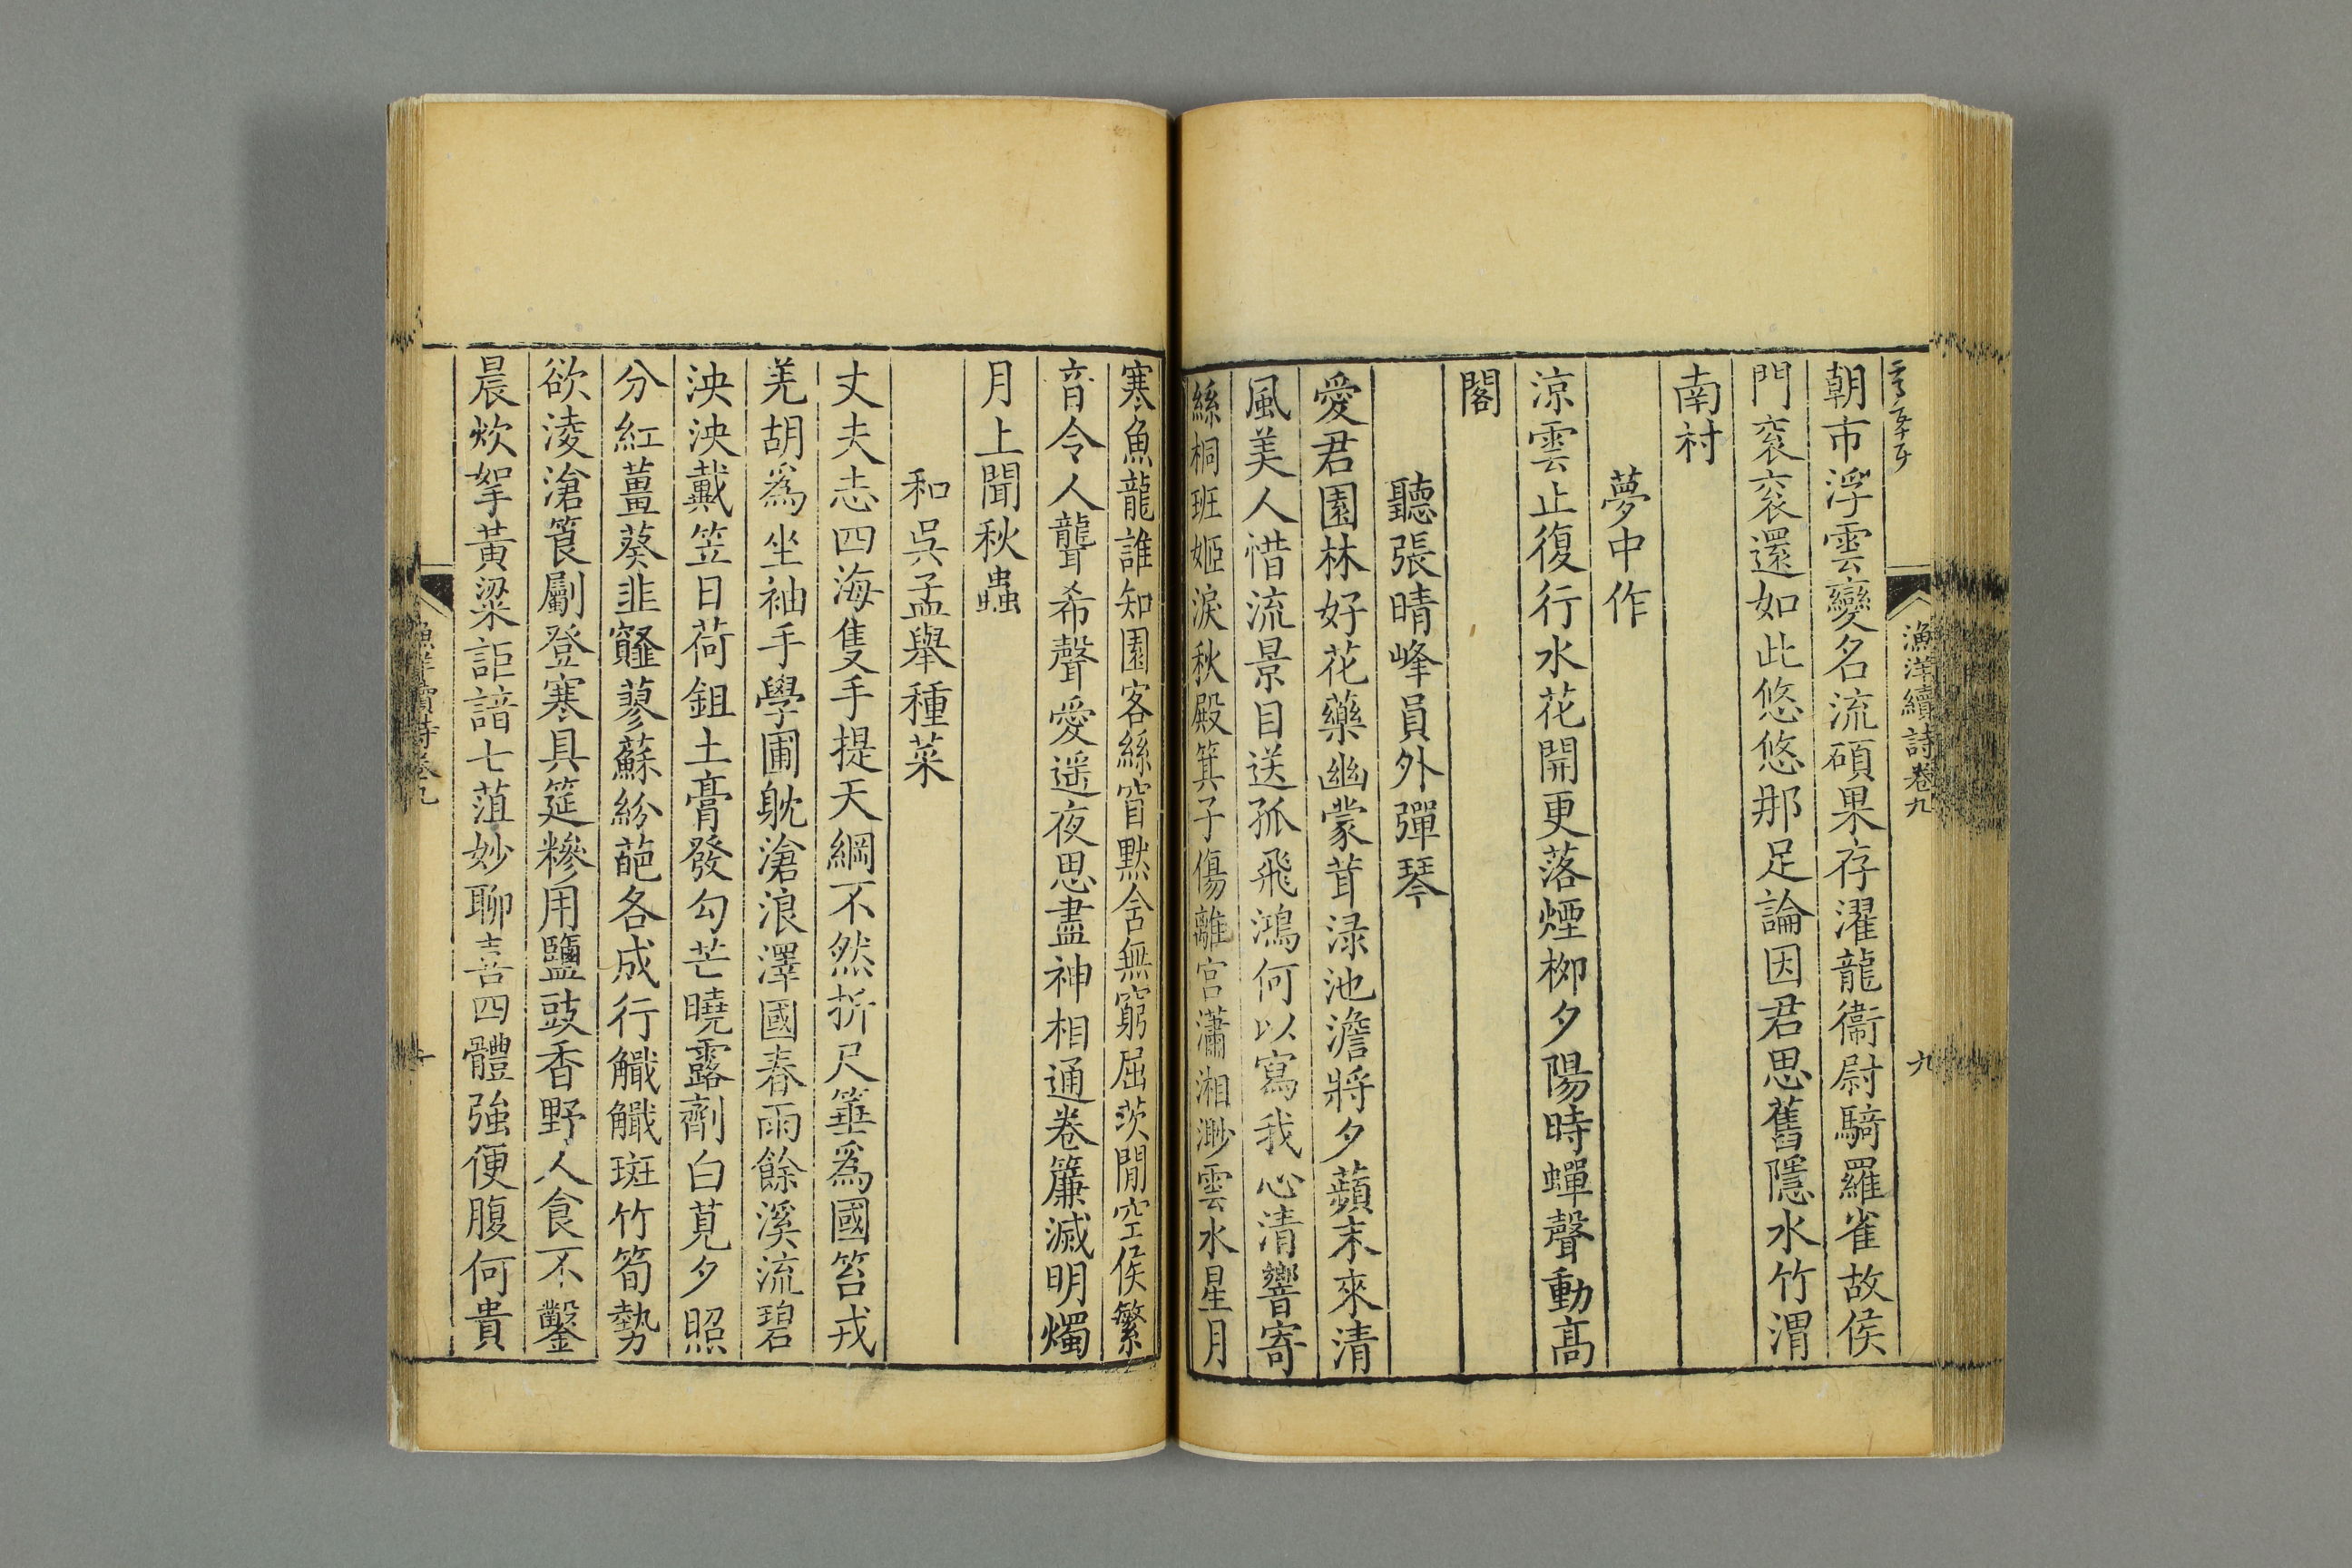 漁洋續詩卷九
九
朝市浮雲變名流碩果存濯龍衞尉騎羅雀故侯
門衮衮還如此悠悠那足論因君思舊隱水竹渭
南村
夢中作
涼雲止復行水花開更落煙柳夕陽時蟬聲動高
閣
聽張晴峰員外彈琴
愛君園林好花藥幽蒙茸渌池澹將夕蘋末來清
風美人惜流景目送孤飛鴻何以寫我心清響寄
絲桐班姬淚秋殿箕子傷離宮瀟湘渺雲水星月
寒魚龍誰知園客絲窅默含無窮屈茨閒空侯繁
音令人聾希聲愛遥夜思盡神相通卷簾滅明燭
月上聞秋蟲
和吳孟舉種菜
丈夫志四海隻手提天綱不然折尺箠爲國笞戎
羌胡爲坐袖手學圃躭滄浪澤國春雨餘溪流碧
泱泱戴笠日荷鉏土膏發勾芒曉露劑白莧夕照
分紅薑葵韭䪥蓼蘇紛葩各成行觿觿斑竹筍勢
欲淩滄筤劚登寒具筵糝用鹽豉香野人食不鑿
晨炊挐黃粱詎諳七菹妙聊喜四體強便腹何貴
漁洋續詩卷九